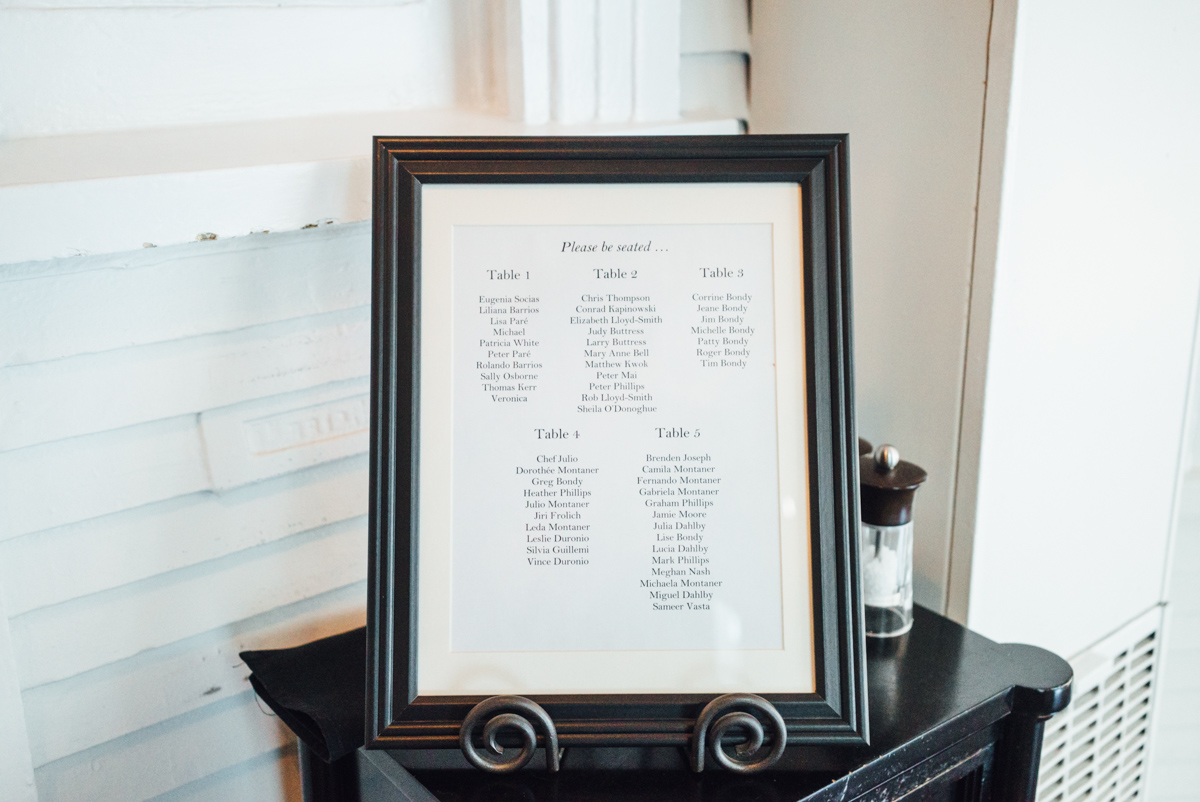 Please be seated ...
Table 1
Eugenia Socias
Liliana Barrios
Lisa Paré
Michael
Patricia White
Peter Paré
Rolando Barrios
Sally Osborne
Thomas Kerr
Veronica
Table 2
Chris Thompson
Conrad Kapinowski
Elizabeth Lloyd-Smith
Judy Buttress
Larry Buttress
Mary Anne Bell
Matthew Kwok
Peter Mai
Peter Phillips
Rob Lloyd-Smith
Sheila O'Donoghue
Table 3
Corrine Bondy
Jeane Bondy
Jim Bondy
Michelle Bondy
Patty Bondy
Roger Bondy
Tim Bondy
Table 4
Chef Julio
Dorothée Montaner
Greg Bondy
Heather Phillips
Julio Montaner
Jiri Frolich
Leda Montaner
Leslie Duronio
Silvia Guillemi
Vince Duronio
Table 5
Brenden Joseph
Camila Montaner
Fernando Montaner
Gabriela Montaner
Graham Phillips
Jamie Moore
Julia Dahlby
Lise Bondy
Lucia Dahlby
Mark Phillips
Meghan Nash
Michaela Montaner
Miguel Dahlby
Sameer Vasta